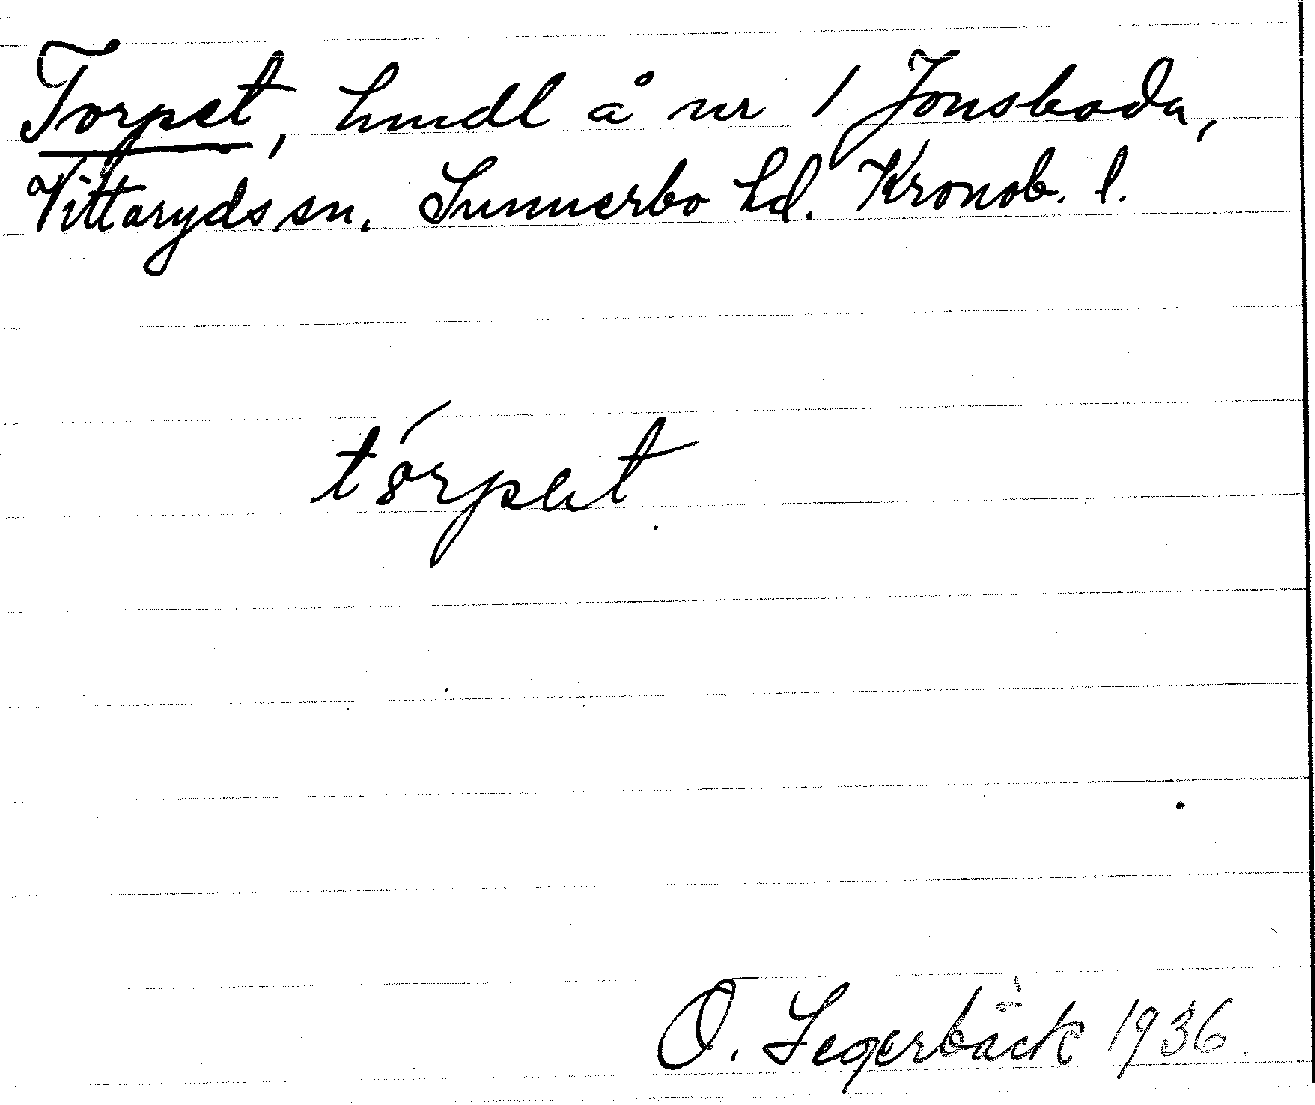 Torpet, hmdl å nr 1 Jonsboda,
Vittaryds sn. Sunnerbo hd. Kronob. l.
tórpet
O. Segerbäck 1936.